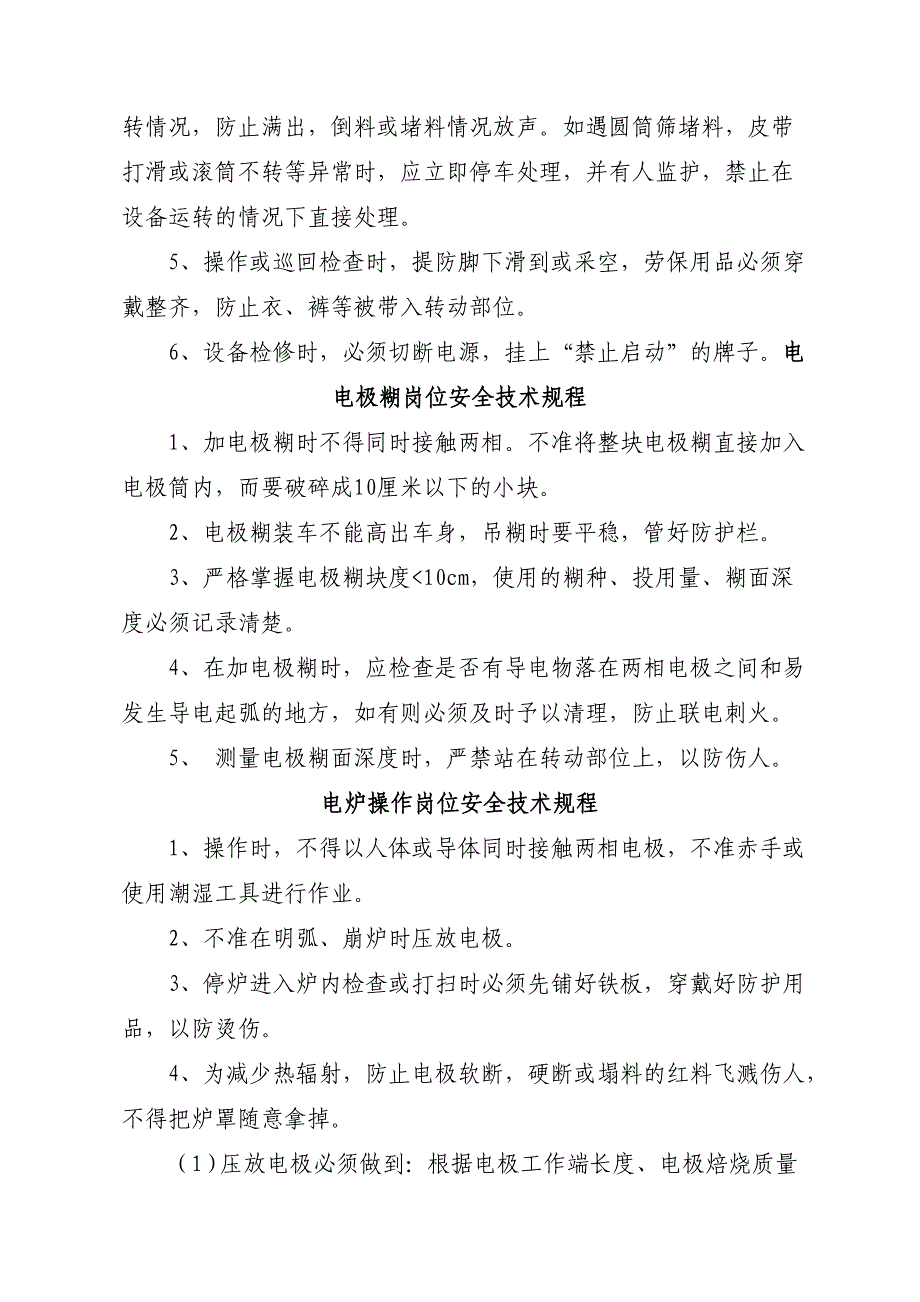 转情况，防止满出，倒料或堵料情况放声。如遇圆筒筛堵料，皮带
打滑或滚筒不转等异常时，应立即停车处理，并有人监护，禁止在
设备运转的情况下直接处理。
5、操作或巡回检查时，提防脚下滑到或采空，劳保用品必须穿
戴整齐，防止衣、裤等被带入转动部位。
6、设备检修时，必须切断电源，挂上“禁止启动”的牌子。电
电极糊岗位安全技术规程
1、加电极糊时不得同时接触两相。不准将整块电极糊直接加入
电极筒内，而要破碎成10厘米以下的小块。
2、电极糊装车不能高出车身，吊糊时要平稳，管好防护栏。
3、严格掌握电极糊块度<10cm，使用的糊种、投用量、糊面深
度必须记录清楚。
4、在加电极糊时，应检查是否有导电物落在两相电极之间和易
发生导电起弧的地方，如有则必须及时予以清理，防止联电刺火。
5、 测量电极糊面深度时，严禁站在转动部位上，以防伤人。
电炉操作岗位安全技术规程
1、操作时，不得以人体或导体同时接触两相电极，不准赤手或
使用潮湿工具进行作业。
2、不准在明弧、崩炉时压放电极。
3、停炉进入炉内检查或打扫时必须先铺好铁板，穿戴好防护用
品，以防烫伤。
4、为减少热辐射，防止电极软断，硬断或塌料的红料飞溅伤人，
不得把炉罩随意拿掉。
(1)压放电极必须做到：根据电极工作端长度、电极焙烧质量